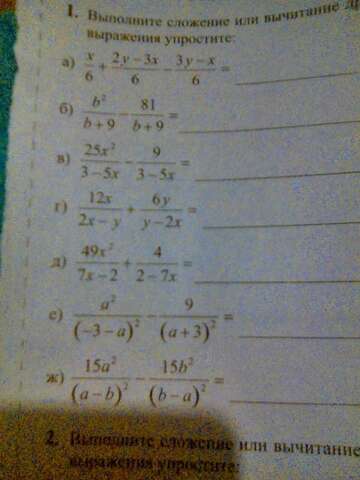 1. Выполните сложение или вычитание др
выражения упростите:
а) x/6 + (2y − 3x)/6 − (3y − x)/6 =
б) b²/(b + 9) − 81/(b + 9) =
в) 25x²/(3 − 5x) − 9/(3 − 5x) =
г) 12x/(2x − y) + 6y/(y − 2x) =
д) 49x²/(7x − 2) + 4/(2 − 7x) =
е) a²/(−3 − a)² − 9/(a + 3)² =
ж) 15a²/(a − b)² − 15b²/(b − a)² =
2. Выполните сложение или вычитание
выражения упростите: